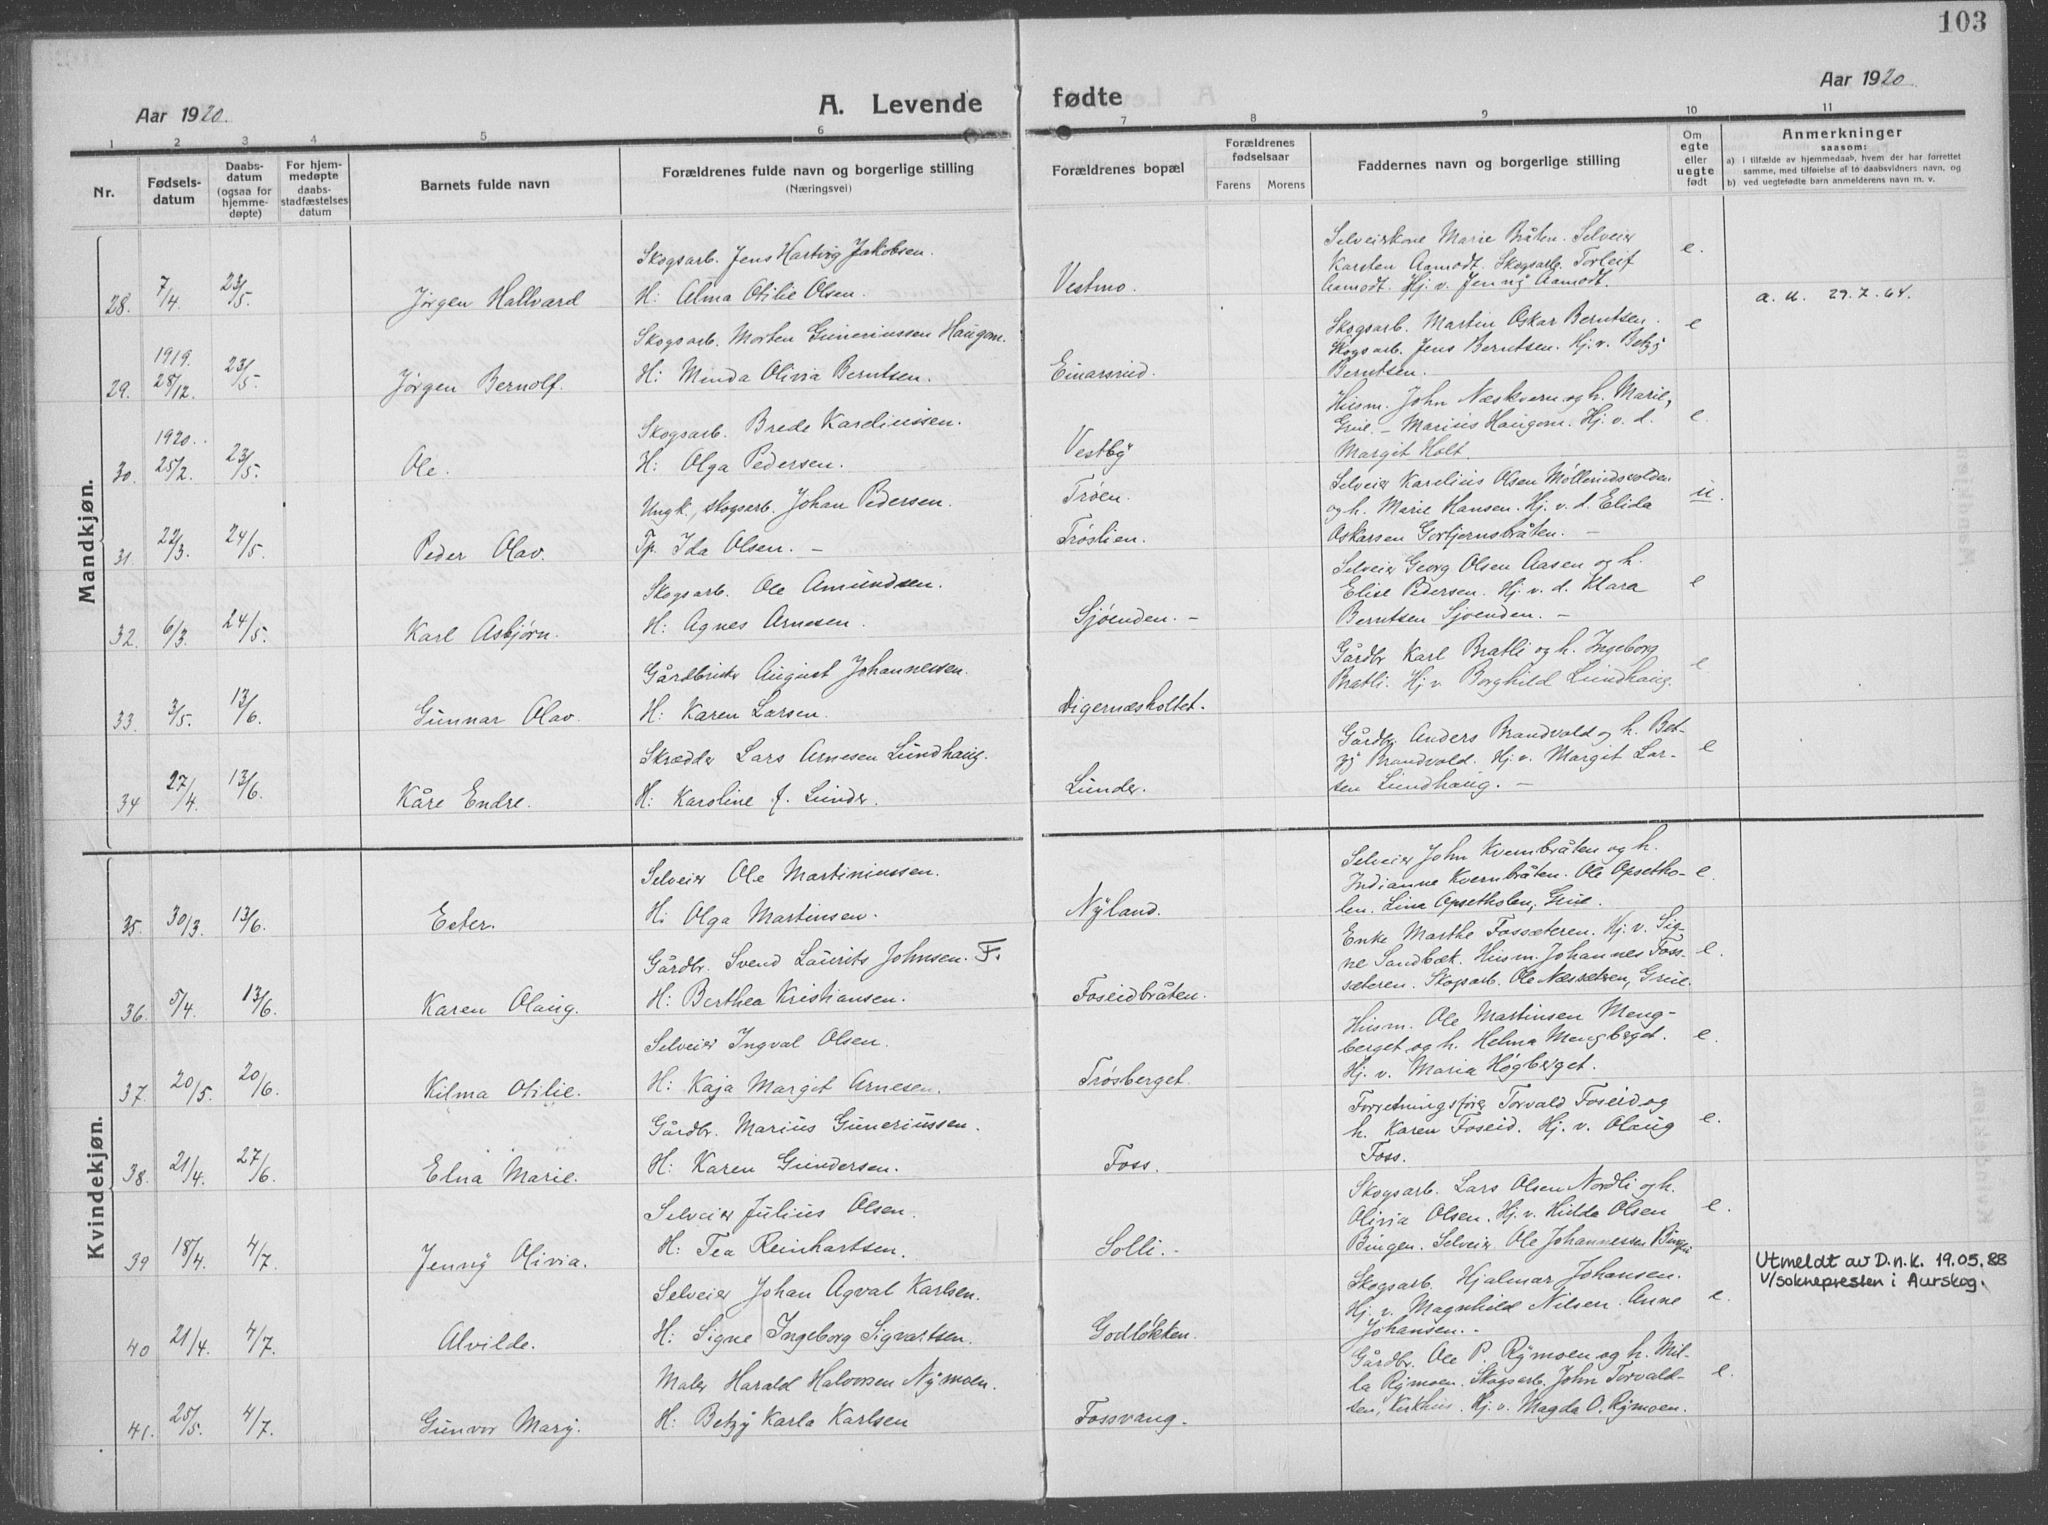 103
Aar 1920.
A. Levende fødte
Aar 1920.
1 2 3 4 5 6 7 8 9 10 11
Nr.
Fødselsdatum
Daabsdatum (ogsaa for hjemmedøpte)
For hjemmedøpte daabsstadfæstelses datum
Barnets fulde navn
Forældrenes fulde navn og borgerlige stilling (Næringsvei)
Forældrenes bopæl
Forældrenes fødselsaar
Farens Morens
Faddernes navn og borgerlige stilling
Om egte eller uegte født
Anmerkninger
saasom:
a) i tilfælde av hjemmedaab, hvem der har forrettet samme, med tilføielse af to daabsvidners navn, og
b) ved uegtefødte barn anmelderens navn m. v.
Mandkjøn.
28. 7/4 23/5. Jørgen Hallvard
Skogsarb. Jens Hartvig Jakobsen.
H: Alma Otilie Olsen.
Vestmo.
Selveierkone Marie Bråten. Selveier
Karsten Aamodt. Skogsarb. Torleif
Aamodt. Hj. v. Jenny Aamodt.
e.
a. u. 29.7.64.
29. 1919. 28/12. 23/5. Jørgen Bernolf.
Skogsarb. Morten Guneriussen Haugom.
H: Minda Olivia Berntsen.
Einarsrud.
Skogsarb. Martin Oskar Berntsen.
Skogsarb. Jens Berntsen. Hj. v. Betzy
Berntsen.
e
30. 1920. 25/2. 23/5. Ole.
Skogsarb. Brede Kareliussen.
H: Olga Pedersen.
Vestby
Husm. John Næskvern og h. Marie,
Grue. – Marius Haugom. Hj. v. d.
Margit Holt.
e
31. 22/3. 24/5. Peder Olav.
Ungk., skogsarb. Johan Pedersen.
Tp. Ida Olsen. –
Trøen.
Trøslien.
Selveier Karelius Olsen Møllerudsvolden
og h. Marie Hansen. Hj. v. d. Elida
Oskarsen Gortjernsbråten. –
u.
32. 6/3. 24/5. Karl Asbjørn.
Skogsarb. Ole Amundsen.
H: Agnes Arnesen.
Sjøenden. –
Selveier Georg Olsen Aasen og h.
Elise Pedersen. Hj. v. d. Klara
Berntsen Sjøenden. –
e
33. 3/5. 13/6. Gunnar Olav.
Gårdbruker August Johannessen.
H: Karen Larsen.
Digernæsholtet.
Gårdbr. Karl Bratli og h. Ingeborg
Bratli. Hj. v. Borghild Lundhaug.
e
34 27/4. 13/6. Kåre Endre.
Skrædder Lars Arnesen Lundhaug.
H: Karoline f. Lunder.
Lunder.
Gårdbr. Anders Brandvold og h. Bet-
zy Brandvold. Hj. v. Margit Lar-
sen Lundhaug. –
e
Kvindekjøn.
35. 30/3. 13/6. Ester.
Selveier Ole Martiniussen.
H: Olga Martinsen.
Nyland.
Selveier John Kvernbråten og h.
Indianne Kvernbråten. Ole Opsetho-
len. Lina Opsetholen, Grue.
e.
36. 5/4. 13/6. Karen Olaug.
Gårdbr. Svend Laurits Johnsen. F.
H: Berthea Kristiansen.
Foseidbråten.
Enke Marthe Fossæteren. Hj. v. Sig-
ne Sandbæk. Husm. Johannes Foss-
sæteren. Skogsarb. Ole Næssetren, Grue.
e.
37. 20/5. 20/6. Kilma Otilie.
Selveier Ingval Olsen.
H: Kaja Margit Arnesen.
Trøsberget.
Husm. Ole Martinsen Meng-
berget og h. Helma Mengberget.
Hj. v. Maria Høgberget.
e.
38. 21/4. 27/6. Elna Marie.
Gårdbr. Marius Guneriussen.
H: Karen Gundersen.
Foss.
Forretningsfører Torvald Foseid og
h. Karen Foseid. Hj. v. Olaug
Foss.
e.
39 18/4. 4/7. Jenny Olivia.
Selveier Julius Olsen.
H: Tea Reinhartsen.
Solli. –
Skogsarb. Lars Olsen Nordli og h.
Olivia Olsen. Hj. v. Hilda Olsen
Bingen. Selveier Ole Johannessen Bingen
e.
Utmeldt av D.n.k. 19.05.88
v/soknepresten i Aurskog.
40 21/4. 4/7. Alvilde.
Selveier Johan Agval Karlsen.
H: Signe Ingeborg Sigvartsen.
Godløkten.
Skogsarb. Hjalmar Johansen.
Hj. v. Magnhild Nilsen. Anne
Johansen. –
e.
41. 25/5. 4/7. Gunvor Mary.
Maler Harald Halvorsen Nymoen.
H: Betzy Karla Karlsen
Fossvang.
Gårdbr. Ole P. Rymoen og h. Mil-
la Rymoen. Skogsarb. John Torvald-
sen, Kirkhus. Hj. v. Magda O. Rymoen.
e.